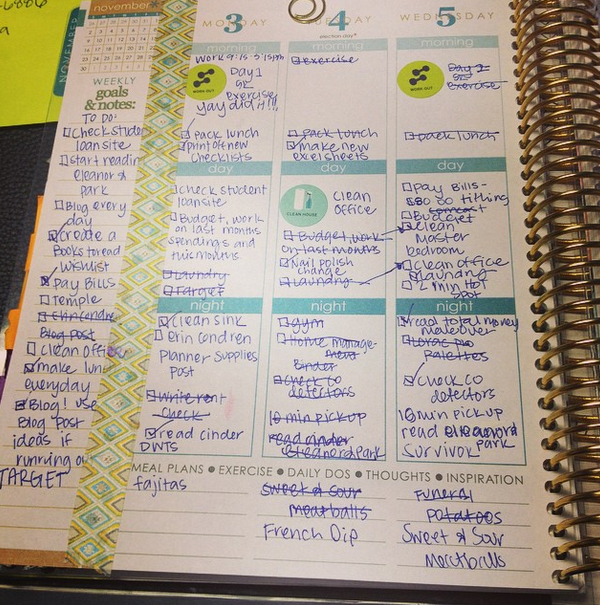 6886
a
november
NOVEMBER
WEEKLY
goals
& notes:
TO DO:
check studen
loan site
start readin
eleanor &
park
Blog every
day
create a
Books to read
wishlist
pay Bills
Temple
Erin Condren
Blog Post
clean office
make lun
everyday
Blog! use
Blog Post
ideas if
running ou
TARGET
MONDAY
3
morning
work 9:15-5:15pm
WORK OUT
Day 1
Exercise
yay did it!!!
pack lunch
print off new
checklists
day
check student
loan site
Budget, work
on last months
spendings and
this months
Laundry
Target
night
clean sink
Erin Condren
Planner Supplies
Post
Write rent
check
read cinder
DWTS
TUESDAY
4
election day*
morning
exercise
pack lunch
make new
excel sheets
day
CLEAN HOUSE
clean
office
Budget, work
on last months
Nail polish
change
Laundry
night
gym
Home manage-
ment
Binder
check co
detectors
10 min pick up
read cinder
Eleanor & Park
WEDNESDAY
5
morning
WORK OUT
Day 2
Exercise
pack lunch
day
pay Bills-
$80 to tithing
Budget
clean
Master
bedroom
clean office
Laundry
2 min Hot
Spot
night
read total money
makeover
Lorac pro
palettes
check co
detectors
10 min pick up
read eleanor &
park
Survivor
MEAL PLANS ● EXERCISE ● DAILY DOS ● THOUGHTS ● INSPIRATION
fajitas
Sweet & sour
meatballs
French Dip
Funeral
potatoes
Sweet & Sour
Meatballs